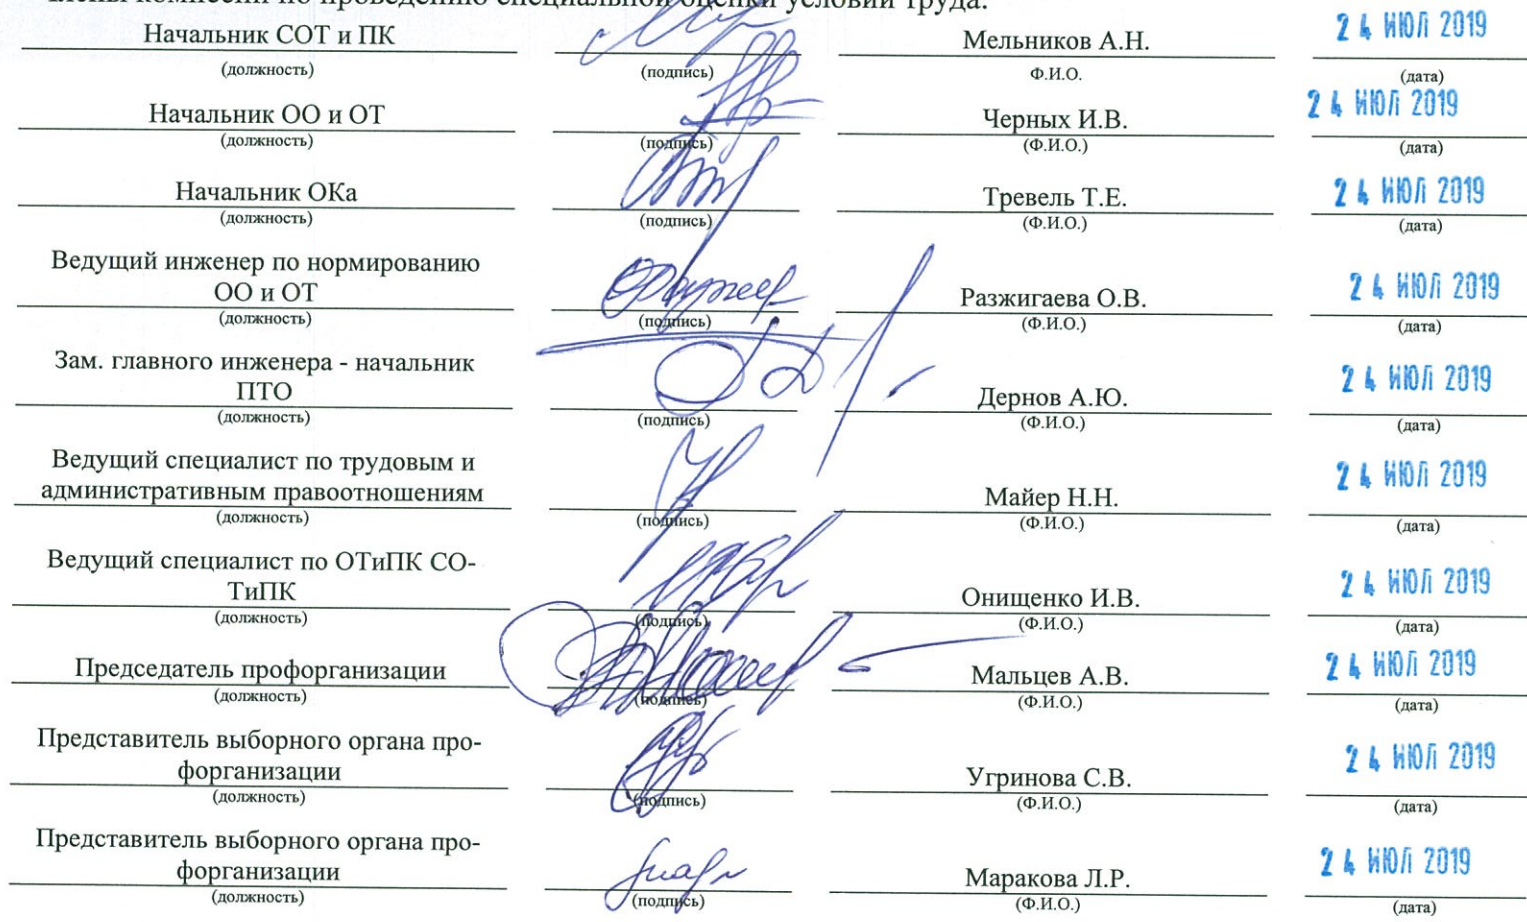 Члены комиссии по проведению специальной оценки условий труда:
Начальник СОТ и ПК Мельников А.Н. 24 ИЮЛ 2019
(должность) (подпись) Ф.И.О. (дата)
Начальник ОО и ОТ Черных И.В. 24 ИЮЛ 2019
(должность) (подпись) (Ф.И.О.) (дата)
Начальник ОКа Тревель Т.Е. 24 ИЮЛ 2019
(должность) (подпись) (Ф.И.О.) (дата)
Ведущий инженер по нормированию
ОО и ОТ Разжигаева О.В. 24 ИЮЛ 2019
(должность) (подпись) (Ф.И.О.) (дата)
Зам. главного инженера - начальник
ПТО Дернов А.Ю. 24 ИЮЛ 2019
(должность) (подпись) (Ф.И.О.) (дата)
Ведущий специалист по трудовым и
административным правоотношениям Майер Н.Н. 24 ИЮЛ 2019
(должность) (подпись) (Ф.И.О.) (дата)
Ведущий специалист по ОТиПК СО-
ТиПК Онищенко И.В. 24 ИЮЛ 2019
(должность) (подпись) (Ф.И.О.) (дата)
Председатель профорганизации Мальцев А.В. 24 ИЮЛ 2019
(должность) (подпись) (Ф.И.О.) (дата)
Представитель выборного органа про-
форганизации Угринова С.В. 24 ИЮЛ 2019
(должность) (подпись) (Ф.И.О.) (дата)
Представитель выборного органа про-
форганизации Маракова Л.Р. 24 ИЮЛ 2019
(должность) (подпись) (Ф.И.О.) (дата)